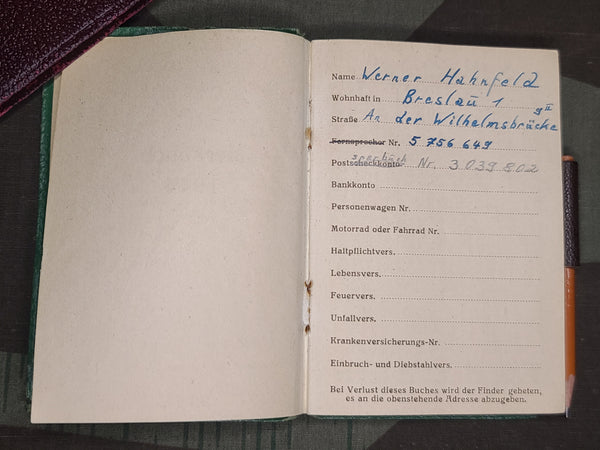 Name Werner Hahnfeld
Wohnhaft in Breslau 1
Straße An der Wilhelmsbrücke 9 II
Fernsprecher Nr. 5 756 649
Postscheckkonto Sparbuch Nr. 3 039 802
Bankkonto
Personenwagen Nr.
Motorrad oder Fahrrad Nr.
Haftpflichtvers.
Lebensvers.
Feuervers.
Unfallvers.
Krankenversicherungs-Nr.
Einbruch- und Diebstahlvers.
Bei Verlust dieses Buches wird der Finder gebeten,
es an die obenstehende Adresse abzugeben.